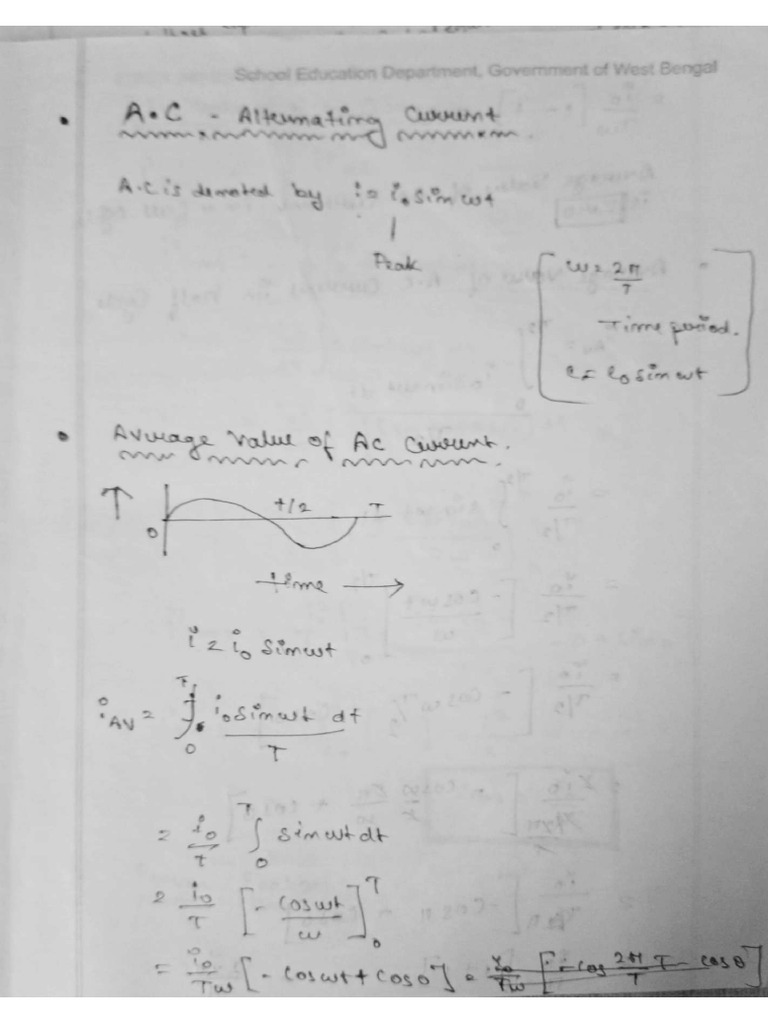 School Education Department, Government of West Bengal
• A.C - Alternating Current
A.C is denoted by i = i₀ sin ωt
Peak
ω = 2π/T
Time period.
e = e₀ sin ωt
• Average Value of AC Current.
↑ 0 t/2 T
time →
i = i₀ sin ωt
i_AV = ∫₀ᵀ i₀ sin ωt dt / T
= i₀/T ∫₀ᵀ sin ωt dt
= i₀/T [- cos ωt/ω]₀ᵀ
= i₀/Tω [- cos ωt + cos 0] = i₀/Tω [- cos 2π/T T - cos 0]